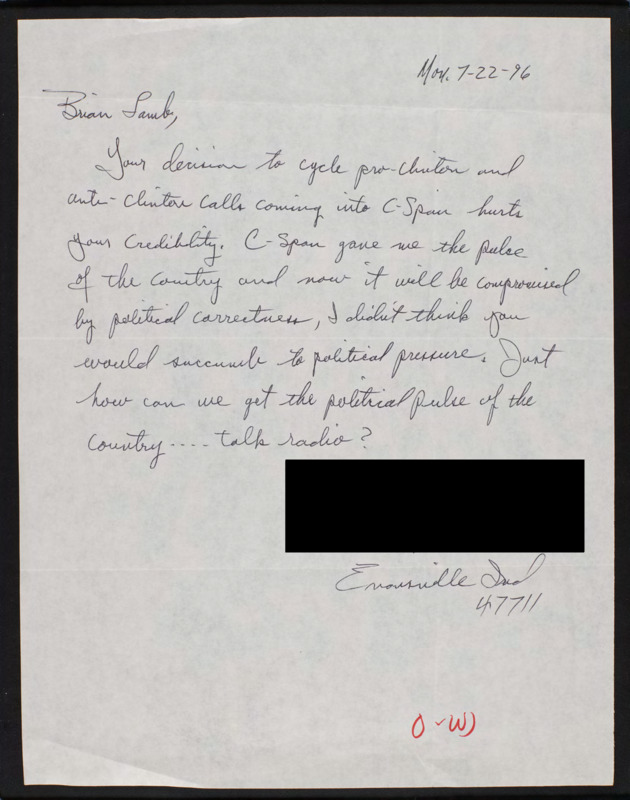 Mon. 7-22-96
Brian Lamb,
Your decision to cycle pro-Clinton and
anti-Clinton calls coming into C-Span hurts
your credibility. C-Span gave me the pulse
of the country and now it will be compromised
by political correctness, I didn't think you
would succumb to political pressure. Just
how can we get the political pulse of the
country.... talk radio?
Evansville Ind
47711